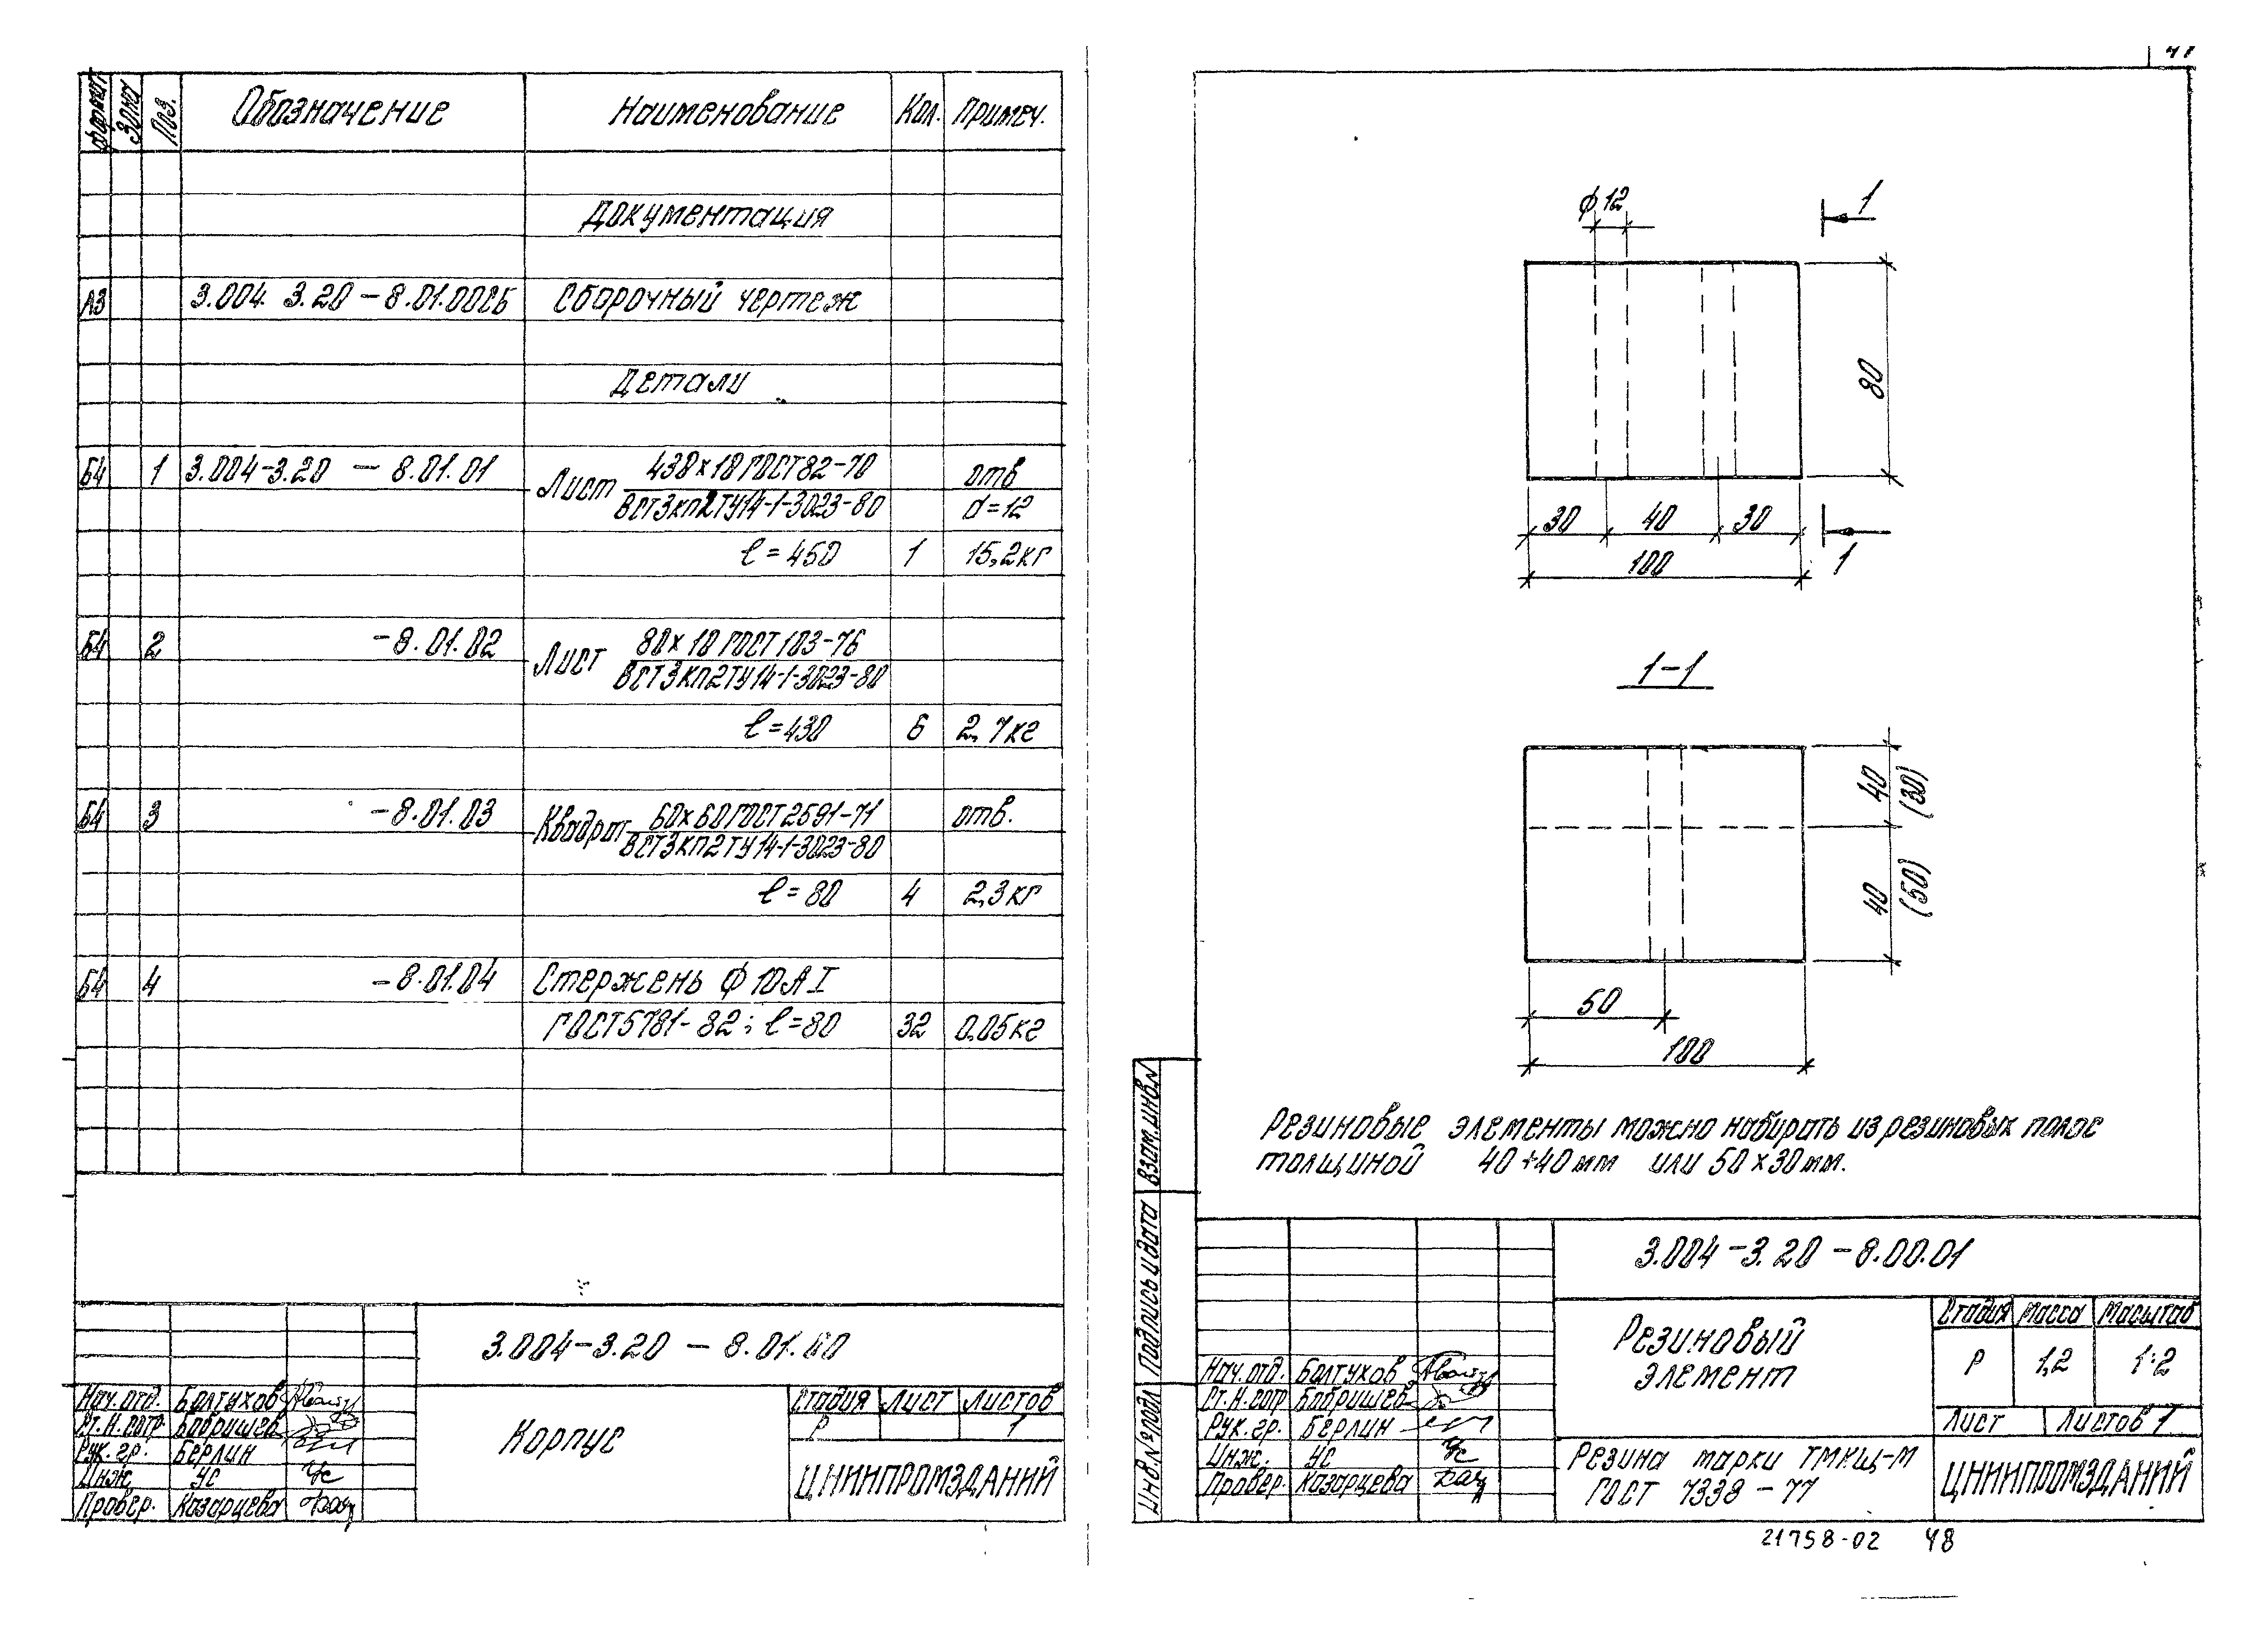 формат Зона Поз. Обозначение Наименование Кол. Примеч.
Документация
А3 3.004 3.20 – 8.01.00СБ Сборочный чертеж
Детали
Б4 1 3.004-3.20 — 8.01.01 Лист 430х10 ГОСТ 82-70 отв
ВСТ3кп2 ТУ14-1-3023-80 d=12
ℓ=450 1 15,2кг
Б4 2 -8.01.02 Лист 80х10 ГОСТ 103-76
ВСТ3КП2ТУ14-1-3023-80
ℓ=430 6 2,7кг
Б4 3 -8.01.03 Квадрат 60х60 ГОСТ 2591-71 отв.
ВСТ3КП2ТУ14-1-3023-80
ℓ=80 4 2,3кг
Б4 4 -8.01.04 Стержень Ф10АI
ГОСТ5781-82; ℓ=80 32 0,05кг
3.004-3.20 – 8.01.00
Нач.отд. Болтухов
Ст.Н.сотр. Бобришев
Рук.гр. Берлин
Инж. Ус
Провер. Казарцева
Корпус
Стадия Лист Листов
Р 1
ЦНИИПРОМЗДАНИЙ
ф12
1
80
30 40 30
100
1
1-1
40
(30)
40
(50)
50
100
Резиновые элементы можно набирать из резиновых полос
толщиной 40+40мм или 50х30мм.
Взам.инв.№
Подпись и дата
Инв.№ подл
3.004-3.20-8.00.01
Резиновый
элемент
Стадия Масса Масштаб
Р 1,2 1:2
Лист Листов 1
Нач.отд. Болтухов
Ст.Н.сотр Бобришев
Рук.гр. Берлин
Инж. Ус
Провер. Казарцева
Резина марки ТМКЩ-М
ГОСТ 7338-77
ЦНИИПРОМЗДАНИЙ
21758-02 48